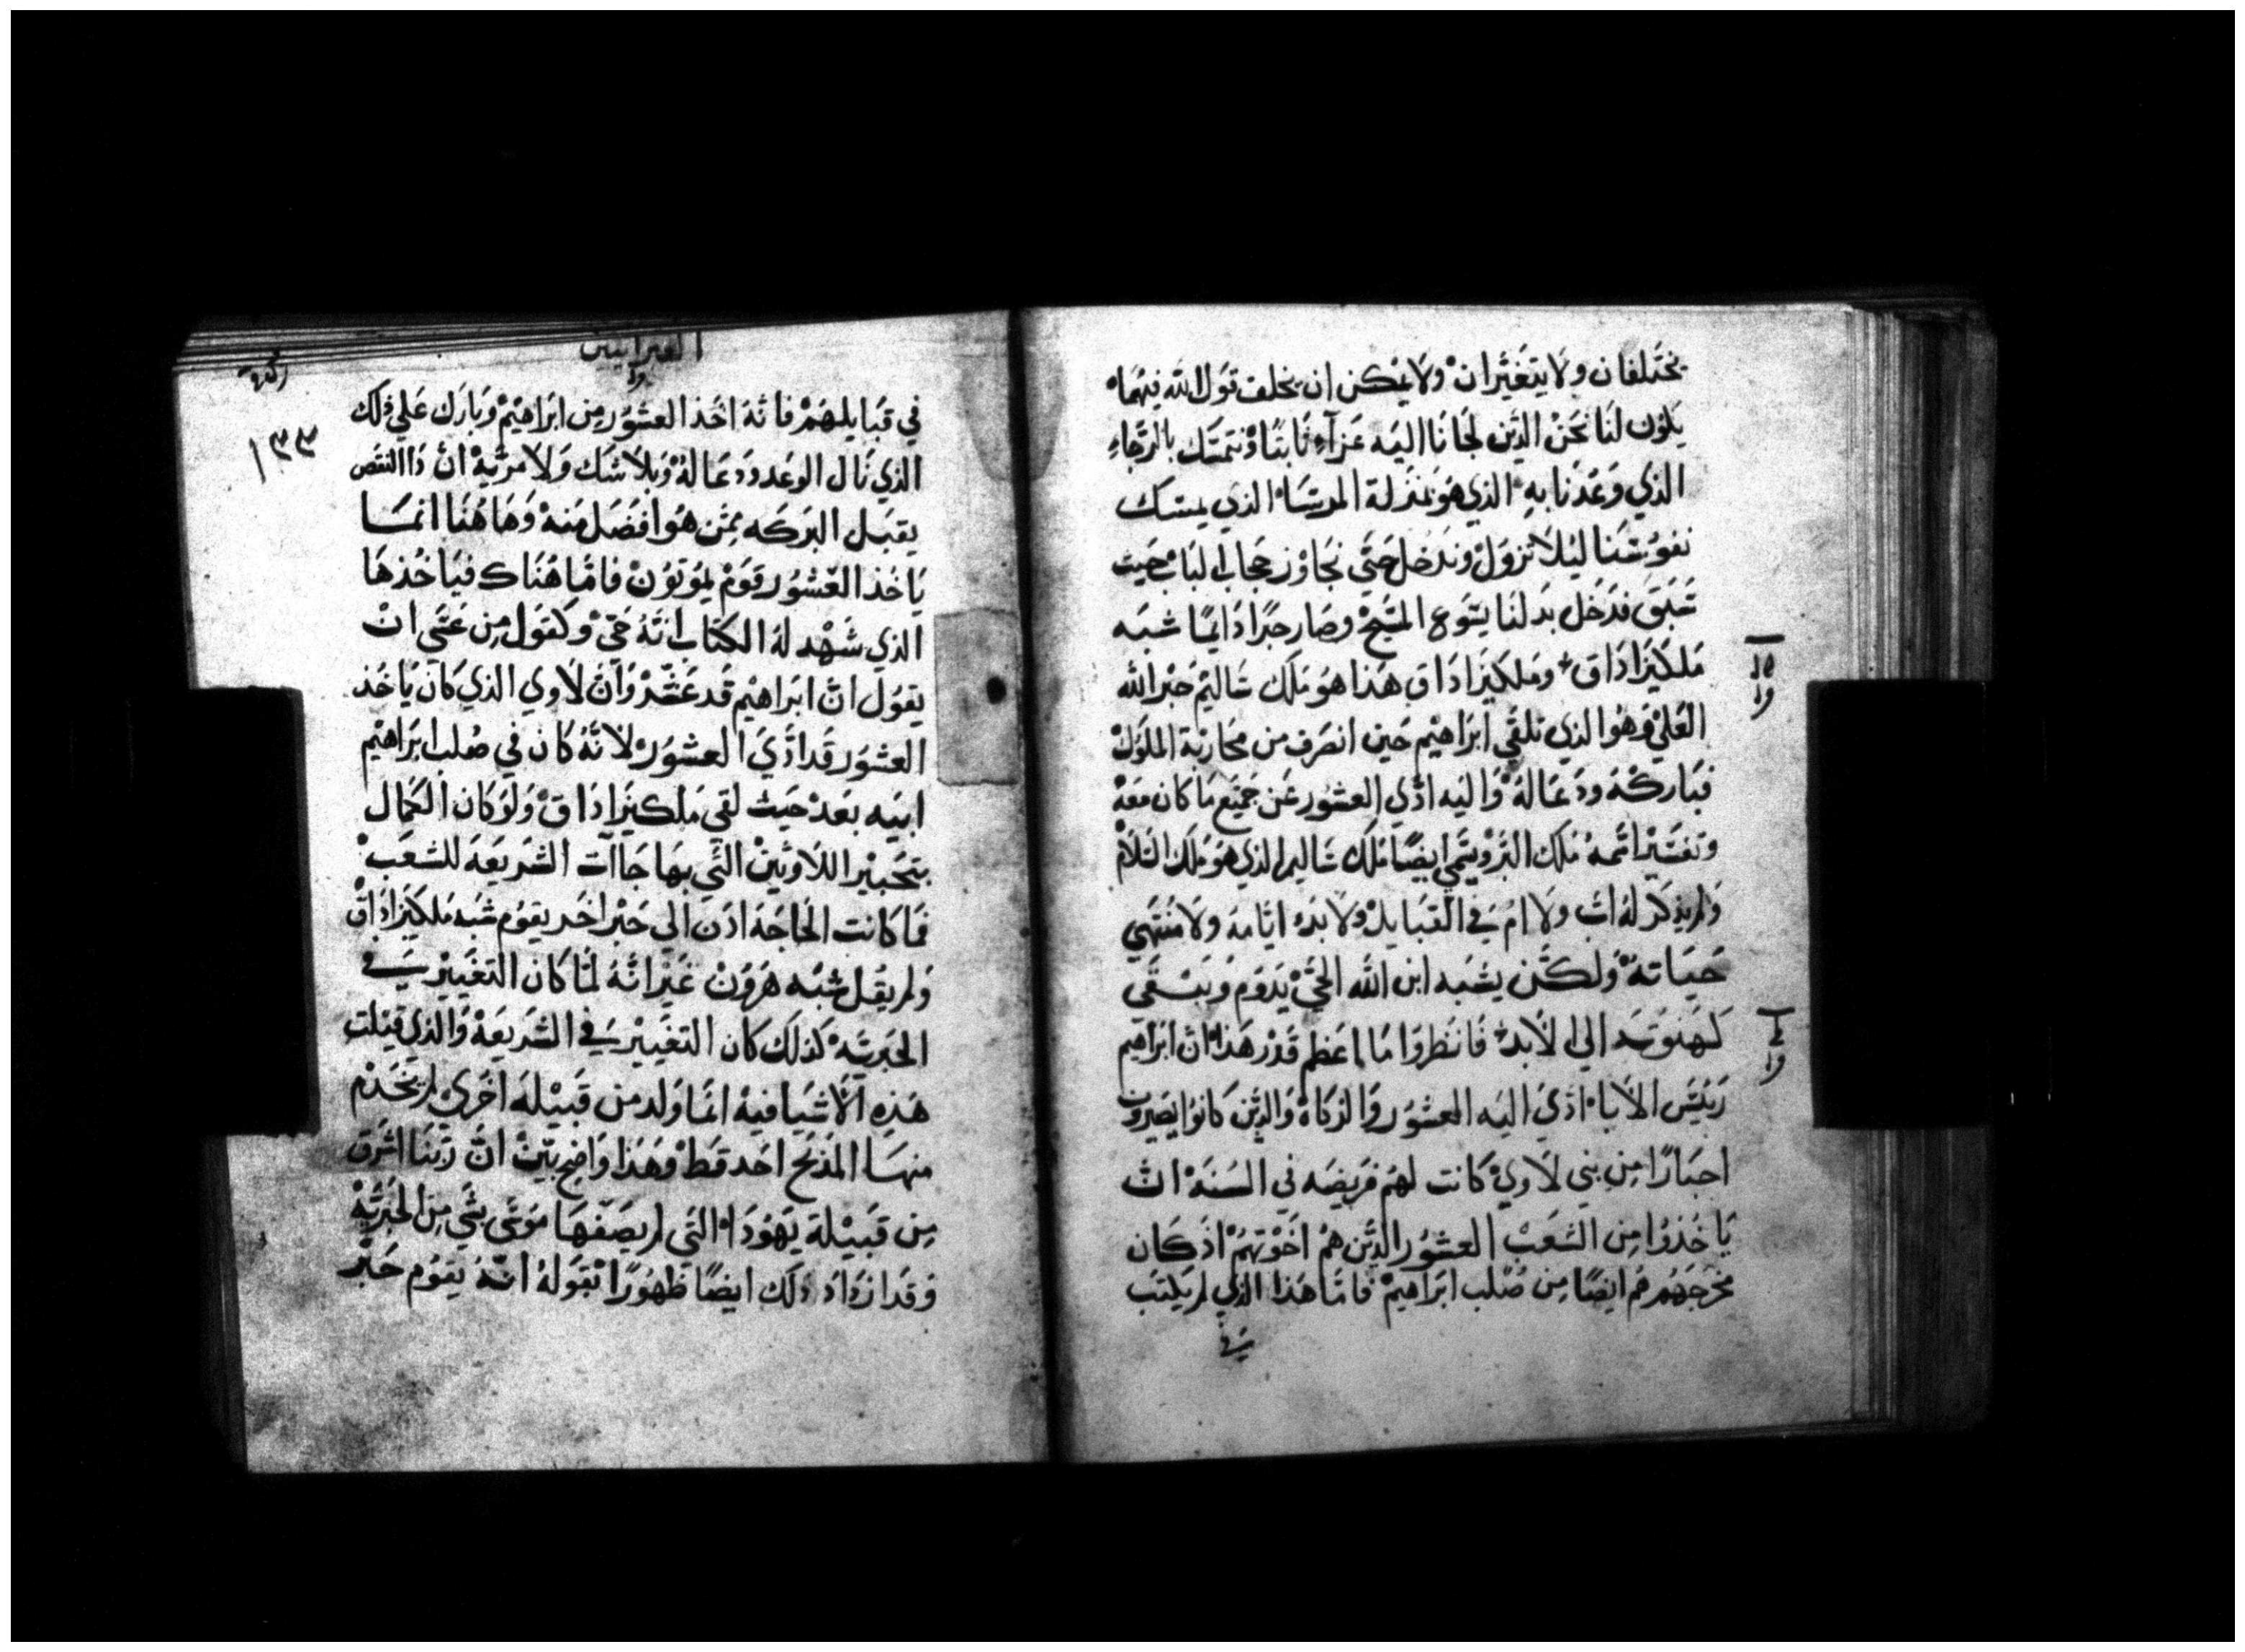 يختلفان ولا يتغيران ولا يمكن ان يخلف قول الله فيهما
يكون لنا نحن الذين لجانا اليه عزآء ثابتا ونتمسك بالرجاء
الذي وعدنا به الذي هو بمنزلة المرساه الذي يمسك
نفوسنا ليلا تزول وندخل حتي نجاوز حجاب الباب حيث
سبق فدخل بدلنا يسوع المسيح وصار حبرا دايما شبه
ملكيزاداق وملكيزاداق هذا هو ملك شاليم حبر الله
العلي وهو الذي تلقي ابراهيم حين انصرف من محاربة الملوك
فباركه ودعا له واليه ادي العشور عن جميع ما كان معه
وتفسير اسمه ملك البر ويسمي ايضا ملك شاليم الذي هو ملك السلام
ولم يذكر له اب ولا ام في القبايل ولا بدو ايامه ولا منتهي
حياته ولكن يشبه ابن الله الحي يدوم ويبقي
كهنوته الي الابد فانظروا ما اعظم قدر هذا ان ابراهيم
رييس الاباء ادي اليه العشور والزكاه والذين كانوا يصيرون
احبارا من بني لاوي كانت لهم فريضه في السنه ان
ياخذوا من الشعب العشور الذين هم اخوتهم اذ كان
مخرجهم هم ايضا من صلب ابراهيم فاما هذا الذي لم يكتب
في
العبرانيين
١٣٣
في قبايلهم فانه اخذ العشور من ابراهيم وبارك علي ذلك
الذي نال الوعد ودعا له وبلا شك ولا مرية ان ذا النقص
يقبل البركه ممن هو افضل منه وهاهنا انما
ياخذ العشور قوم يموتون فاما هناك فياخذها
الذي شهد له الكتاب انه حي وكقول من عسي ان
يقول ان ابراهيم قد عشر وان لاوي الذي كان ياخذ
العشور قد ادي العشور لانه كان في صلب ابراهيم
ابيه بعد حيث لقي ملكيزاداق ولو كان الكمال
بتحبير اللاويين التي بها جاآت الشريعه للشعب
فما كانت الحاجة اذن الي حبر اخر يقوم شبه ملكيزاداق
ولم يقل شبه هرون غير انه لما كان التغيير في
الحبرية كذلك كان التغيير في الشريعة والذي قيلت
هذه الاشيا فيه انما ولد من قبيلة اخري لم يخدم
منها المذبح احد قط وهذا واضح بين ان ربنا اشرق
من قبيلة يهودا التي لم يصفها موسي بشي من الحبرية
وقد ازداد ذلك ايضا ظهورا بقوله انه يقوم حبر